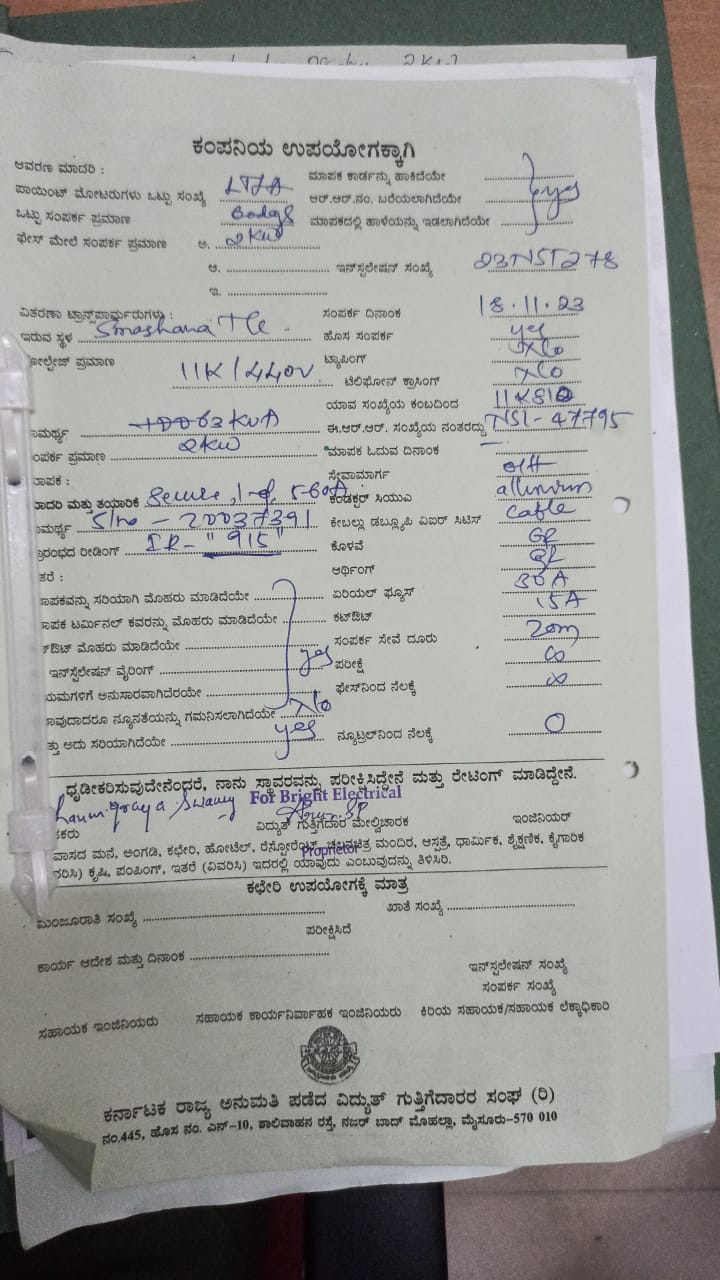 2KW
ಕಂಪನಿಯ ಉಪಯೋಗಕ್ಕಾಗಿ
ಆವರಣ ಮಾದರಿ :
ಮಾಪಕ ಕಾರ್ಡನ್ನು ಹಾಕಿದೆಯೇ
ಪಾಯಿಂಟ್ ಮೋಟರುಗಳು ಒಟ್ಟು ಸಂಖ್ಯೆ
ಆರ್.ಆರ್.ನಂ. ಬರೆಯಲಾಗಿದೆಯೇ yes
ಒಟ್ಟು ಸಂಪರ್ಕ ಪ್ರಮಾಣ
ಮಾಪಕದಲ್ಲಿ ಹಾಳೆಯನ್ನು ಇಡಲಾಗಿದೆಯೇ
ಫೇಸ್ ಮೇಲೆ ಸಂಪರ್ಕ ಪ್ರಮಾಣ ಅ. 2KW
ಆ. ಇನ್‌ಸ್ಟಲೇಷನ್ ಸಂಖ್ಯೆ 23NST278
ಇ.
ವಿತರಣಾ ಟ್ರಾನ್ಸ್‌ಪಾರ್ಮರುಗಳು :
ಸಂಪರ್ಕ ದಿನಾಂಕ 18.11.23
ಇರುವ ಸ್ಥಳ Smashana Tle
ಹೊಸ ಸಂಪರ್ಕ yes
ೋಲ್ಟೇಜ್ ಪ್ರಮಾಣ 11K/440V
ಟ್ಯಾಪಿಂಗ್ No
ಟೆಲಿಫೋನ್ ಕ್ರಾಸಿಂಗ್ No
ಯಾವ ಸಂಖ್ಯೆಯ ಕಂಬದಿಂದ
ಾಮರ್ಥ್ಯ 63KVA
ಈ.ಆರ್.ಆರ್. ಸಂಖ್ಯೆಯ ನಂತರದ್ದು NS1-47795
ಂಪರ್ಕ ಪ್ರಮಾಣ 2KW
ಮಾಪಕ ಓದುವ ದಿನಾಂಕ
ಾಪಕ :
ಸೇವಾಮಾರ್ಗ o/H
ಾದರಿ ಮತ್ತು ತಯಾರಿಕೆ Secure, 5-60A
ಕಂಡಕ್ಟರ್ ಸಿಯುಎ
ಾಮರ್ಥ್ಯ S/no - 20037391
ಕೇಬಲ್ಲು ಡಬ್ಲ್ಯೂಪಿ ವಿಐರ್ ಸಿಟಿಸ್ cable
ಾರಂಭದ ರೀಡಿಂಗ್ IR - "915"
ಕೊಳವೆ GI
ತರೆ :
ಆರ್ಥಿಂಗ್ GI
ಾಪಕವನ್ನು ಸರಿಯಾಗಿ ಮೊಹರು ಮಾಡಿದೆಯೇ
ಏರಿಯಲ್ ಫ್ಯೂಸ್ 30A
ಾಪಕ ಟರ್ಮಿನಲ್ ಕವರನ್ನು ಮೊಹರು ಮಾಡಿದೆಯೇ
ಕಟ್‌ಔಟ್ 15A
ಟ್‌ಔಟ್ ಮೊಹರು ಮಾಡಿದೆಯೇ
ಸಂಪರ್ಕ ಸೇವೆ ದೂರು 20m
ಇನ್‌ಸ್ಟೆಲೇಷನ್ ವೈರಿಂಗ್ yes
ಪರೀಕ್ಷೆ ∞
ಯಮಗಳಿಗೆ ಅನುಸಾರವಾಗಿದೆರಯೇ
ಫೇಸ್‌ನಿಂದ ನೆಲಕ್ಕೆ ∞
ಾವುದಾದರೂ ನ್ಯೂನತೆಯನ್ನು ಗಮನಿಸಲಾಗಿದೆಯೇ No
ತ್ತು ಅದು ಸರಿಯಾಗಿದೆಯೇ yes
ನ್ಯೂಟ್ರಲ್‌ನಿಂದ ನೆಲಕ್ಕೆ 0
ಧೃಡೀಕರಿಸುವುದೇನೆಂದರೆ, ನಾನು ಸ್ಥಾವರವನ್ನು ಪರೀಕ್ಷಿಸಿದ್ದೇನೆ ಮತ್ತು ರೇಟಿಂಗ್ ಮಾಡಿದ್ದೇನೆ.
For Bright Electrical
ಕರು
ವಿದ್ಯುತ್ ಗುತ್ತಿಗೆದಾರ ಮೇಲ್ವಿಚಾರಕ
ಇಂಜಿನಿಯರ್
ವಾಸದ ಮನೆ, ಅಂಗಡಿ, ಕಛೇರಿ, ಹೋಟೆಲ್, ರೆಸ್ಟೋರೆಂಟ್, ಚಲನಚಿತ್ರ ಮಂದಿರ, ಆಸ್ಪತ್ರೆ, ಧಾರ್ಮಿಕ, ಶೈಕ್ಷಣಿಕ, ಕೈಗಾರಿಕ
Proprietor
ರಿಸಿ) ಕೃಷಿ, ಪಂಪಿಂಗ್, ಇತರೆ (ವಿವರಿಸಿ) ಇದರಲ್ಲಿ ಯಾವುದು ಎಂಬುವುದನ್ನು ತಿಳಿಸಿರಿ.
ಕಛೇರಿ ಉಪಯೋಗಕ್ಕೆ ಮಾತ್ರ
ಮಂಜೂರಾತಿ ಸಂಖ್ಯೆ
ಖಾತೆ ಸಂಖ್ಯೆ
ಪರೀಕ್ಷಿಸಿದೆ
ಕಾರ್ಯ ಆದೇಶ ಮತ್ತು ದಿನಾಂಕ
ಇನ್‌ಸ್ಪಲೇಷನ್ ಸಂಖ್ಯೆ
ಸಂಪರ್ಕ ಸಂಖ್ಯೆ
ಸಹಾಯಕ ಇಂಜಿನಿಯರು
ಸಹಾಯಕ ಕಾರ್ಯನಿರ್ವಾಹಕ ಇಂಜಿನಿಯರು
ಕಿರಿಯ ಸಹಾಯಕ/ಸಹಾಯಕ ಲೆಕ್ಕಾಧಿಕಾರಿ
ಕರ್ನಾಟಕ ರಾಜ್ಯ ಅನುಮತಿ ಪಡೆದ ವಿದ್ಯುತ್ ಗುತ್ತಿಗೆದಾರರ ಸಂಘ (ರಿ)
ನಂ.445, ಹೊಸ ನಂ. ಎನ್-10, ಶಾಲಿವಾಹನ ರಸ್ತೆ, ನಜರ್ ಬಾದ್ ಮೊಹಲ್ಲಾ, ಮೈಸೂರು-570 010